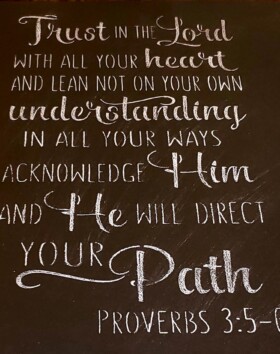 Trust IN THE Lord
WITH ALL YOUR heart
AND LEAN NOT ON YOUR OWN
understanding
IN ALL YOUR WAYS
ACKNOWLEDGE Him
AND He WILL DIRECT
YOUR Path
PROVERBS 3:5-